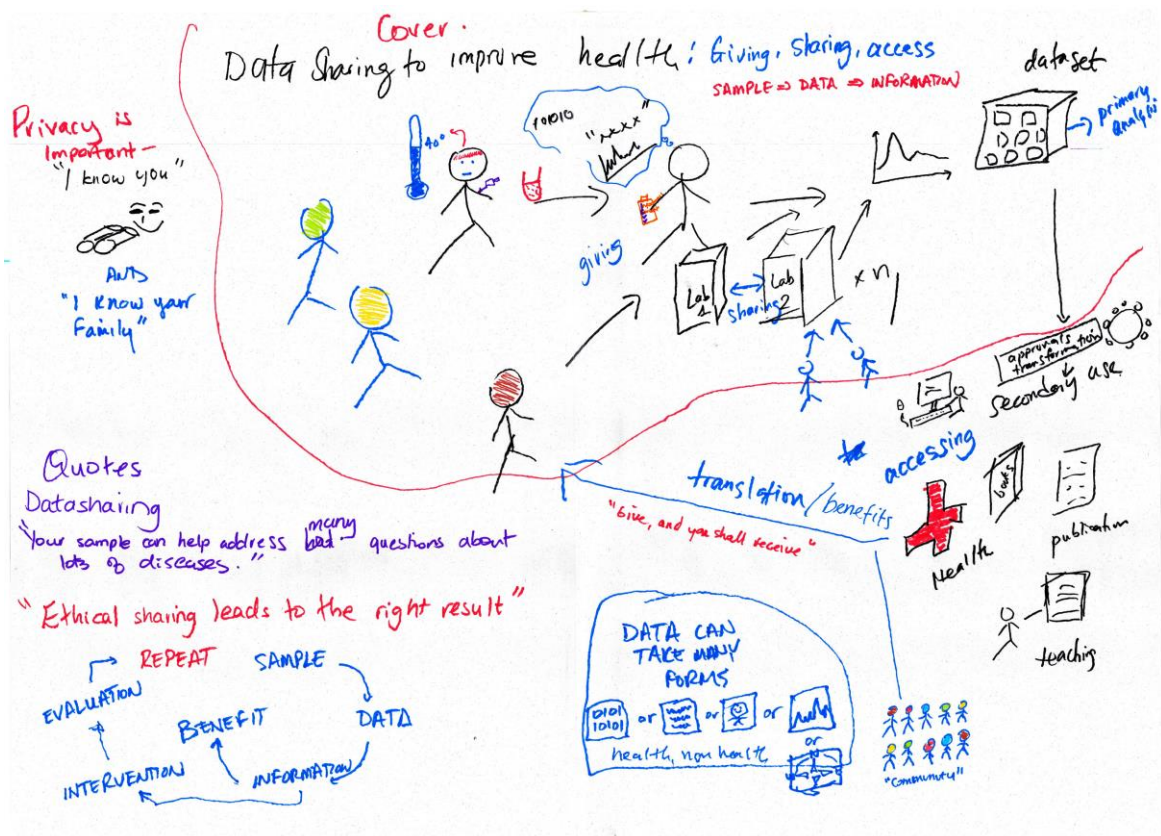 Cover.
Data Sharing to improve health: Giving, sharing, access
SAMPLE => DATA => INFORMATION
dataset
primary
analysis
Privacy is
Important—
"I know you"
AND
"I know your
Family"
40°
10101
"xxxx"
giving
Lab
1
sharing
Lab
2
x n
approvals
transformation
secondary use
accessing
translation/benefits
"Give, and you shall receive"
Health
books
publication
teaching
Quotes
Datasharing
many
"Your sample can help address questions about
lots of diseases."
"Ethical sharing leads to the right result"
REPEAT
SAMPLE
EVALUATION
BENEFIT
DATA
INTERVENTION
INFORMATION
DATA CAN
TAKE MANY
FORMS
0101
10101
or
or
or
or
health, non health
"Community"